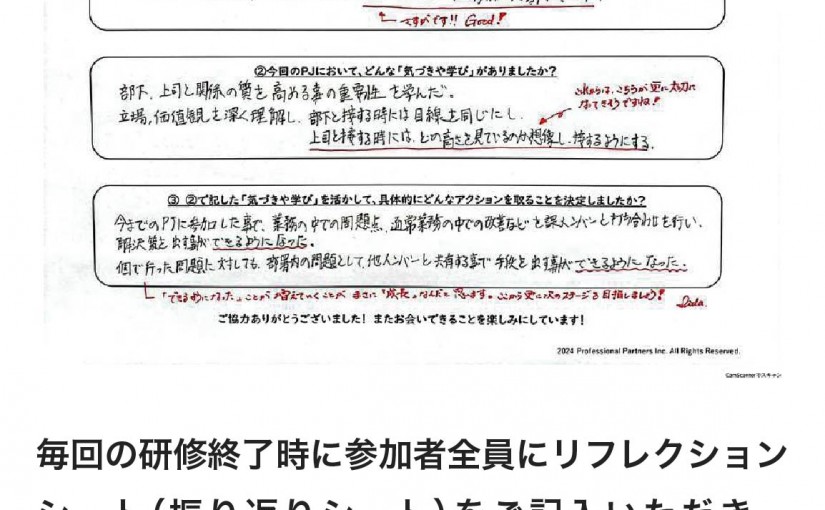 さすがです!! Good!
②今回のPJにおいて、どんな「気づきや学び」がありましたか?
部下、上司と関係の質を高める事の重要性を学んだ。
立場、価値観を深く理解し、部下と接する時には目線を同じにし、
上司と接する時には、どの高さを見ているのか想像し、接するようにする。
これからは、こちらが更に大切に
なってきそうですね!
③ ②で記した「気づきや学び」を活かして、具体的にどんなアクションを取ることを決定しましたか?
今までのPJに参加した事で、業務の中での問題点、通常業務の中での改善などを課メンバーと打ち合わせを行い、
解決策を出す事ができるようになった。
個で行った問題に対しても、部署内の問題として他メンバーと共有する事で手段を出す事ができるようになった。
「できるようになった」ことが増えていくことがまさに「成長」なんだと思います。ここから更に次のステージを目指しましょう!
ご協力ありがとうございました! またお会いできることを楽しみにしています!
2024 Professional Partners Inc. All Rights Reserved.
CamScannerでスキャン
毎回の研修終了時に参加者全員にリフレクション
シート(振り返りシート)をご記入いただき、